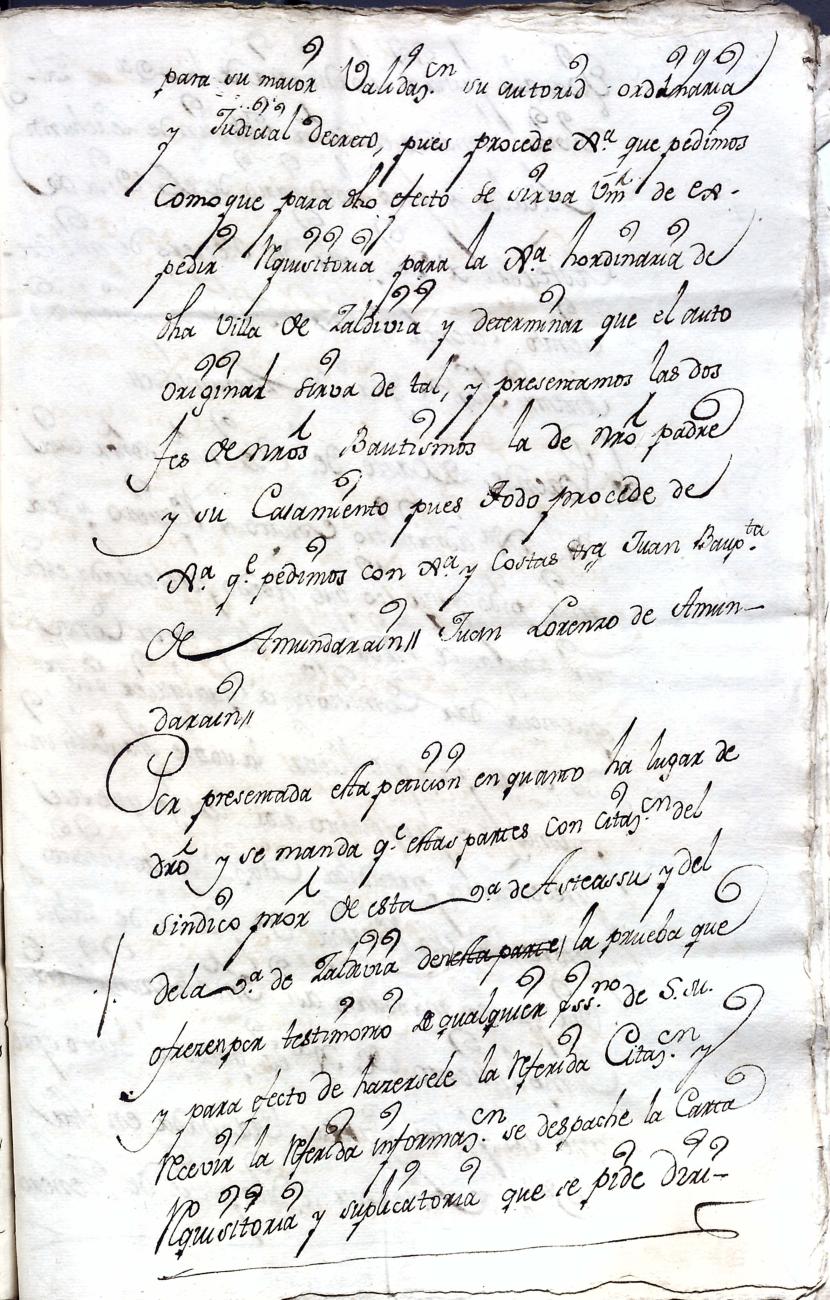 para su maior Validaz.on su autorid ordinaria
y Judicial decreto, pues procede Xª que pedimos
Como que para dho efecto se sirva Vm de ex-
pedir Rquisitoria para la Xª hordinaria de
dha Villa de Zaldivia y determinar que el auto
original sirva de tal, y presentamos las dos
fes de nros Bautismos la de nro padre
y su Casamiento pues todo procede de
Xª q.e pedimos con Xª y Costas Juan Baup.ta
de Amundarain// Juan Lorenzo de Amun-
darain//
Por presentada esta peticion en quanto ha lugar de
dro y se manda q.e estas partes con citaz.on del
sindico pror de esta Vª de Asteassu y del
de la Vª de Zaldivia den esta parte la prueba que
ofrecen por testimonio de qualquier Ess.no de S.M.
y para efecto de hazersele la Referida Citaz.on y
Recevir la Referida informaz.on se despache la Carta
Rquisitoria y suplicatoria que se pide diri-